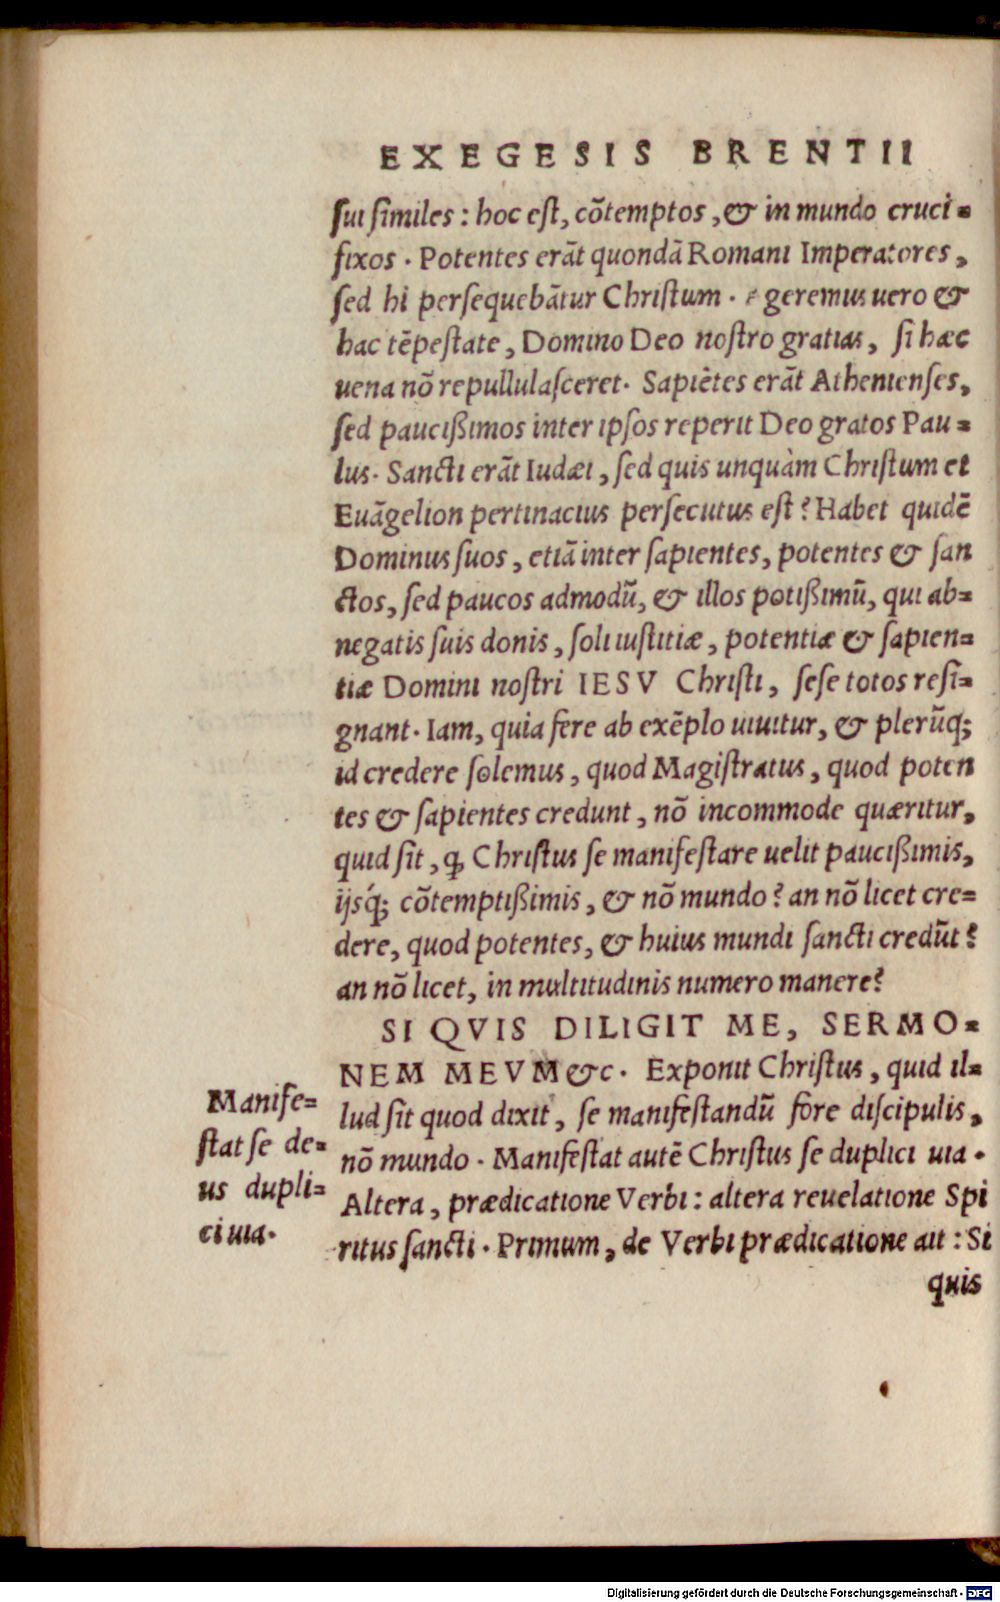 EXEGESIS BRENTII
sui ſimiles : hoc eſt, cõtemptos, & in mundo cruci=
fixos . Potentes erãt quondã Romani Imperatores,
ſed hi perſequebãtur Chriſtum . ageremus uero &
hac tẽpeſtate, Domino Deo noſtro gratias, ſi hæc
uena nõ repullulaſceret. Sapiẽtes erãt Athenienſes,
ſed pauciſsimos inter ipſos reperit Deo gratos Pau=
lus. Sancti erãt Iudæi, ſed quis unquàm Chriſtum et
Euãgelion pertinacius perſecutus eſt? Habet quidẽ
Dominus ſuos, etiã inter ſapientes, potentes & ſan
ctos, ſed paucos admodũ, & illos potiſsimũ, qui ab=
negatis ſuis donis, ſoli iuſtitiæ, potentiæ & ſapien=
tiæ Domini noſtri IESV Chriſti, ſeſe totos reſi=
gnant. Iam, quia fere ab exẽplo uiuitur, & plerũq;
id credere ſolemus, quod Magiſtratus, quod poten
tes & ſapientes credunt, nõ incommode quæritur,
quid ſit, ꝙ Chriſtus ſe manifeſtare uelit pauciſsimis,
ijsq́; cõtemptiſsimis, & nõ mundo? an nõ licet cre=
dere, quod potentes, & huius mundi ſancti credũt?
an nõ licet, in multitudinis numero manere?
SI QVIS DILIGIT ME, SERMO=
NEM MEVM &c. Exponit Chriſtus, quid il=
lud ſit quod dixit, ſe manifeſtandũ fore diſcipulis,
nõ mundo . Manifeſtat autẽ Chriſtus ſe duplici uia .
Altera, prædicatione Verbi: altera reuelatione Spi
ritus ſancti . Primum, de Verbi prædicatione ait : Si
quis
Manife=
ſtat ſe de=
us dupli=
ci uia.
Digitalisierung gefördert durch die Deutsche Forschungsgemeinschaft - DFG